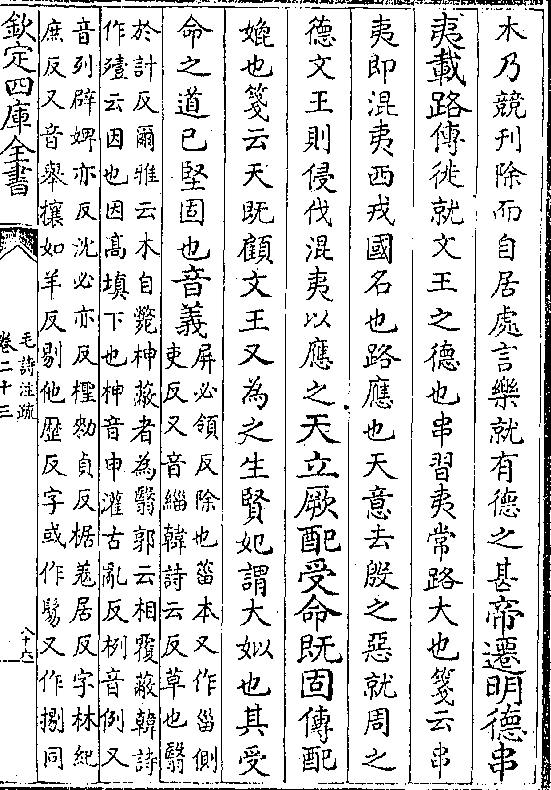 木乃競刊除而自居處言樂就有德之甚帝遷明德串
夷載路傳徙就文王之德也串習夷常路大也箋云串
夷即混夷西戎國名也路應也天意去殷之惡就周之
德文王則侵伐混夷以應之天立厥配受命既固傳配
媲也箋云天既顧文王又為之生賢妃謂大姒也其受
命之道已堅固也音義
屏必領反除也菑本又作甾側
吏反又音緇韓詩云反草也翳
於計反爾雅云木自斃柛蔽者為翳郭云相覆蔽韓詩
作殪云因也因高填下也柛音申灌古亂反栵音例又
音列辟婢亦反沈必亦反檉勑貞反椐羌居反字林紀
庶反又音舉攘如羊反剔他歴反字或作鬄又作㨙同
欽定四庫全書
毛詩注疏
卷二十三